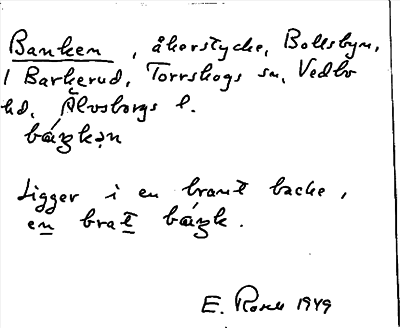 Banken, åkerstycke, Bollsbyn,
1 Barkerud, Torrskogs sn, Vedbo
hd, Älvsborgs l.
báŋkən
Ligger i en brant backe,
en brat báŋk.
E. Rosell 1949